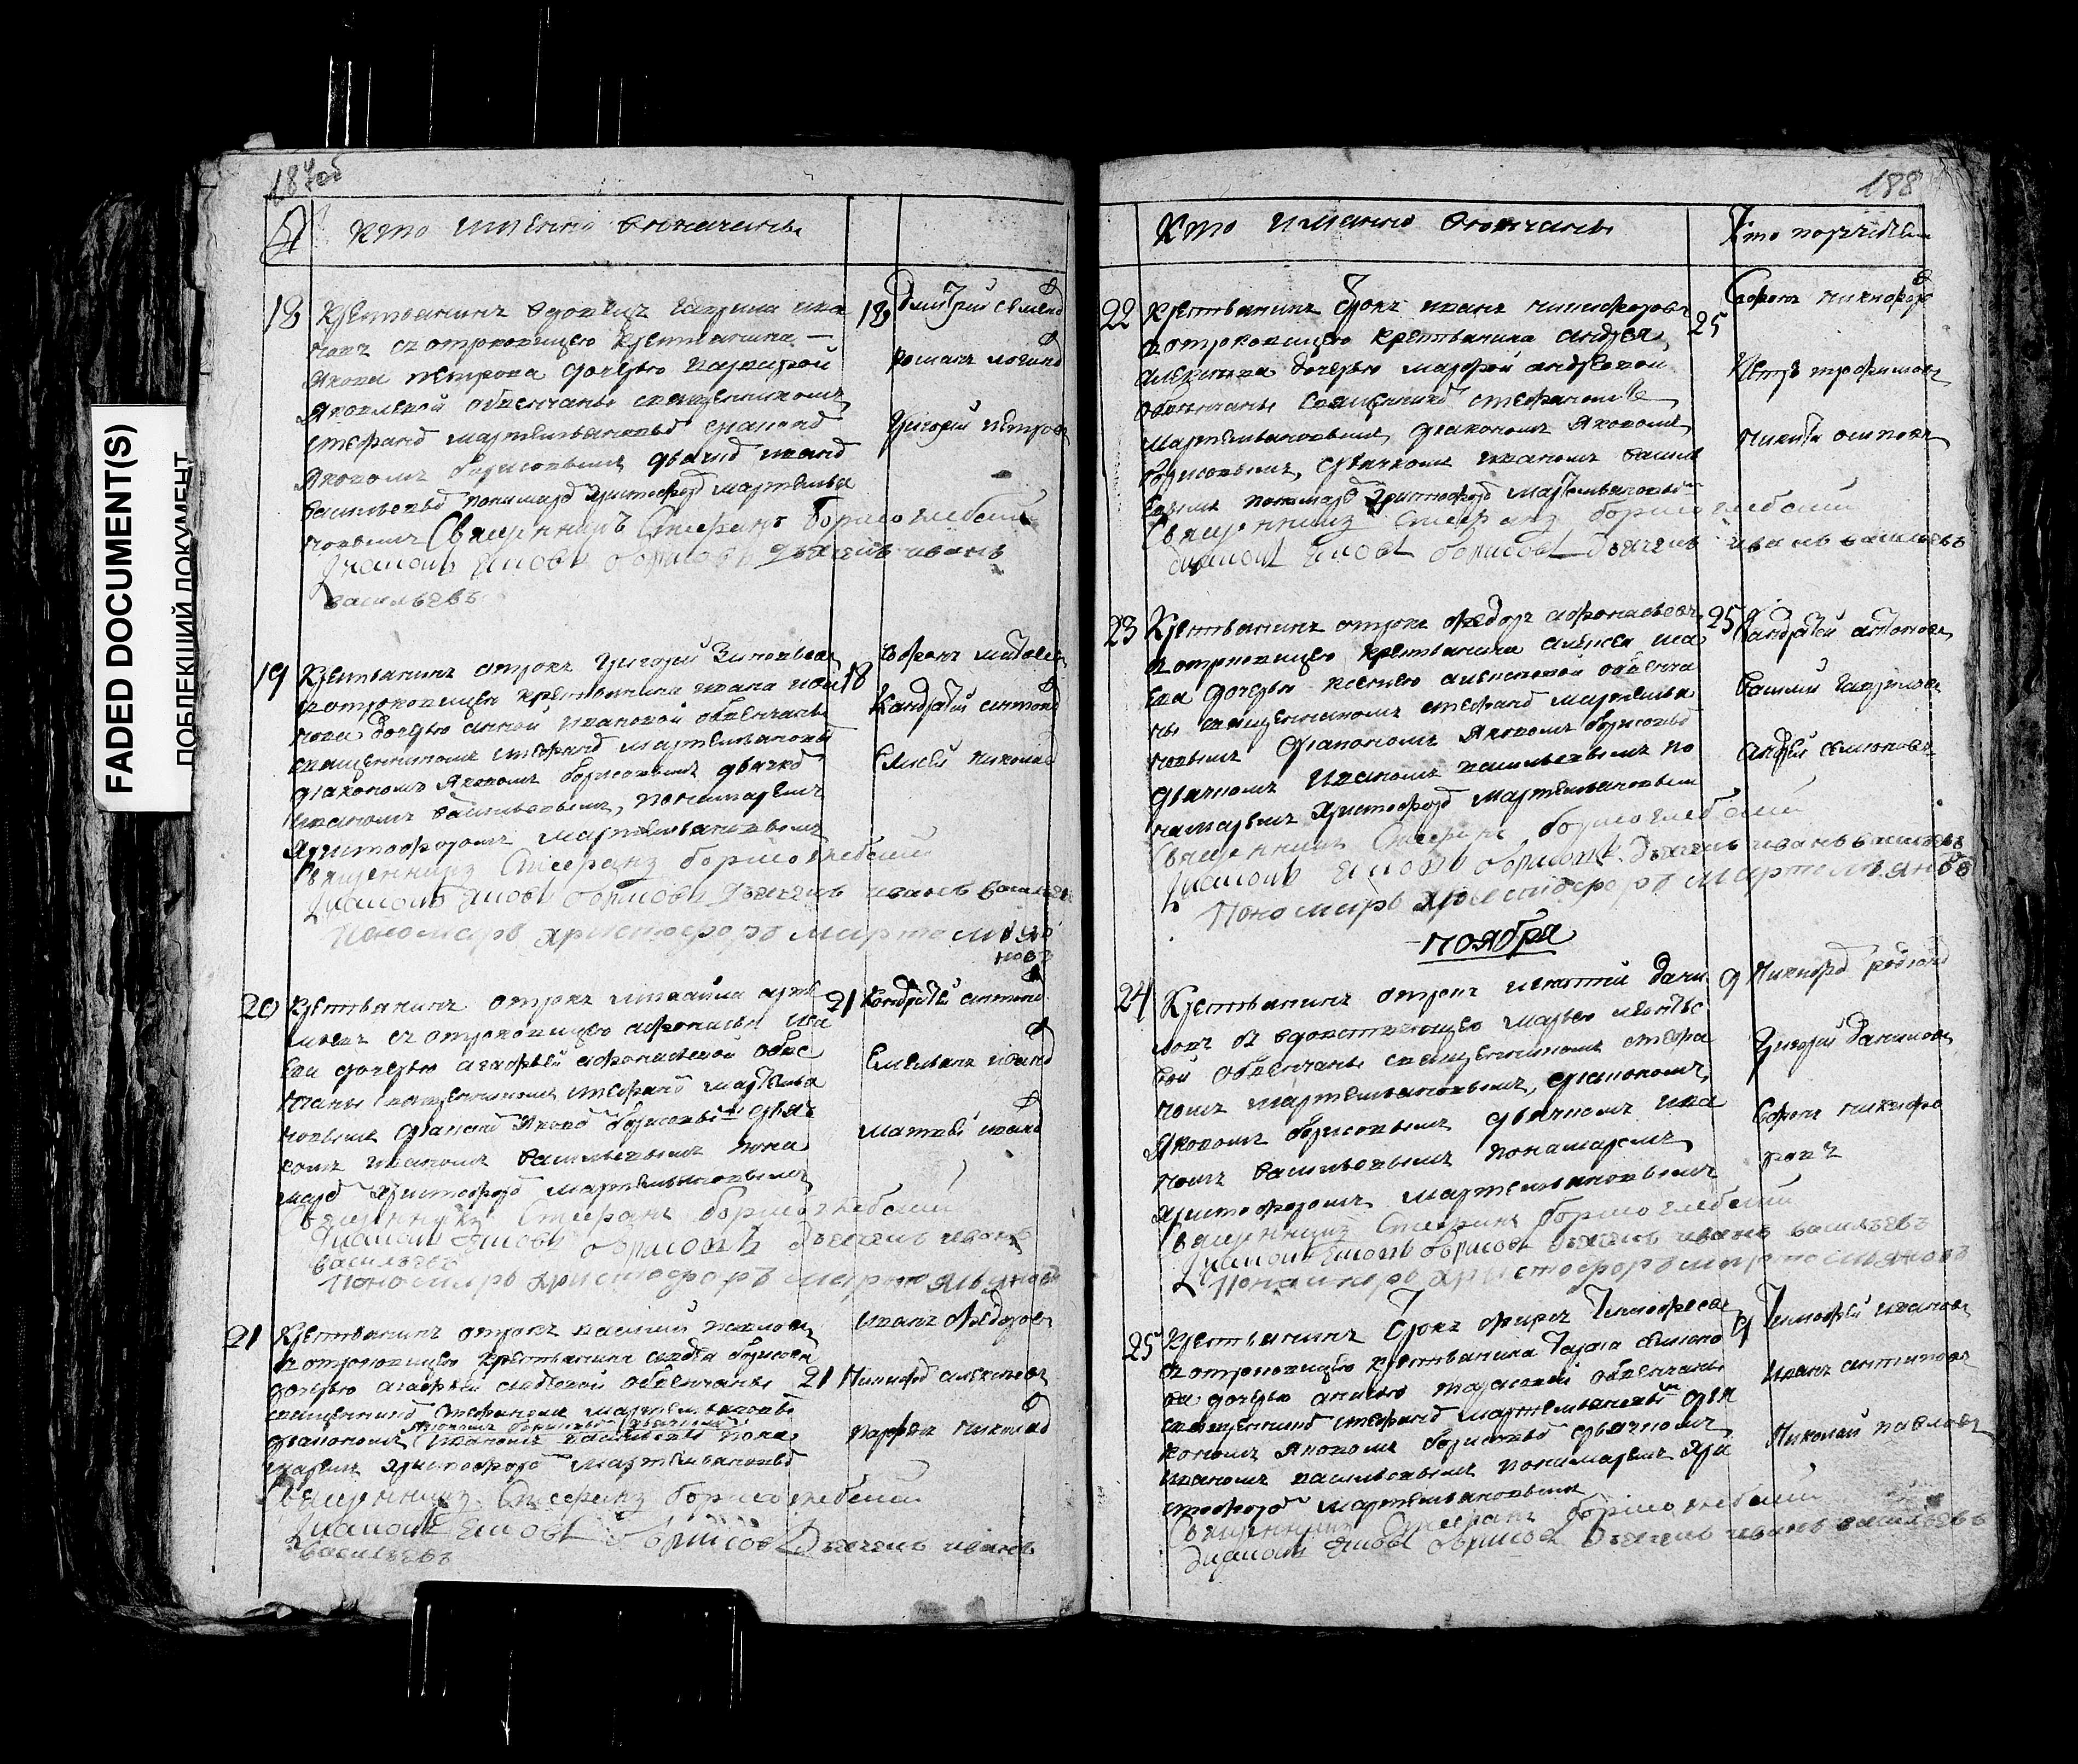 FADED DOCUMENT(S)
ПОБЛЕКШИЙ ДОКУМЕНТ
187об
№ Кто имянно венчаны
18 Крестьянинъ вдовецъ Гаврила Ива
новъ съ отроковицею крестьянина
Якова Петрова дочерью
Яковлевой обвенчаны священникомъ
Стефаном Мартемьяновым
Яковомъ Борисовымъ дьячком Иваном
Васильевым понамарем Христофором Мартемья
новымъ Священникъ Стефанъ Борисоглебский
Диаконъ Яковъ Борисовъ Дьячекъ Иванъ
Васильевъ
18 Дмитрий Семенов
Романъ Логинов
Григорий Петров
19 Крестьянинъ отрокъ Григорий Зиновьев
съ отроковицею крестьянина Ивана
нова дочерью Анной Ивановой обвенчаны
священникомъ Стефаном Мартемьяновым
диакономъ Яковомъ Борисовымъ дьячком
Иваномъ Васильевымъ, понамаремъ
Христофоромъ Мартемьяновымъ
Священникъ Стефанъ Борисоглебский
Диаконъ Яковъ Борисовъ Дьячекъ Иванъ Васильевъ
Пономарь Христофоръ Мартемья
новъ
18
Кандратий Антонов
Елисей Николаев
20 Крестьянинъ отрокъ Михайла Арте
мьевъ съ отроковицею Афонасья Иса
ева дочерью Агафьей Афонасьевой обве
нчаны священникомъ Стефаном Мартемья
новымъ диаконом Яковом Борисовым дьяч
комъ Иваномъ Васильевымъ пона
марем Христофором Мартемьяновымъ
Священникъ Стефанъ Борисоглебский
Диаконъ Яковъ Борисовъ Дьячекъ Иванъ
Васильевъ
Пономарь Христофоръ Мартемьяновъ
21 Кандратий Антонов
Емельянъ Иванов
Матвей Иванов
21 Крестьянинъ отрокъ Василий
съ отроковицею крестьянина Савы Борисова
дочерью Агафьей Савевой обвенчаны
священником Стефаномъ Мартемьяновым
Яковомъ Борисовым дьячкомъ
диакономъ Иваномъ Васильевым пона
марем Христофором Мартемьяновым
Священникъ Стефанъ Борисоглебский
Диаконъ Яковъ Борисовъ Дьячекъ Иванъ
Васильевъ
Иванъ Федоров
21 Алексеев
Парфен Николаев
188
Кто имянно венчаны
Кто поручители
22 Крестьянинъ отрокъ Иванъ Никифоровъ
съ отроковицею крестьянина Андрея
дочерью Марфой Андреевой
обвенчаны священником Стефаномъ
Мартемьяновымъ, диакономъ Яковомъ
Борисовымъ, дьячкомъ Иваномъ Василь
евымъ понамарем Христофором Мартемьяновым
Священникъ Стефанъ Борисоглебский
Диаконъ Яковъ Борисовъ Дьячекъ Иванъ Васильевъ
25
Ефремъ Никифоров
Петръ Трофимовъ
Никита Осиповъ
23 Крестьянинъ отрокъ Федоръ Афонасьевъ
съ отроковицею крестьянина Алексея Иса
ева дочерью Ксениею Алексеевой обвенча
ны священникомъ Стефаном Мартемья
новымъ диакономъ Яковомъ Борисовым
дьячкомъ Иваномъ Васильевымъ по
намаремъ Христофором Мартемьяновым
Священникъ Стефанъ Борисоглебский
Диаконъ Яковъ Борисовъ Дьячекъ Иванъ Васильевъ
Пономарь Христофоръ Мартемьяновъ
25 Кандратей Антоновъ
Василий Гаврилов
Андрей Семеновъ
Ноября
24 Крестьянинъ отрокъ Игнатий Дани
ловъ съ вдовствующею Марьею
вой обвенчаны священникомъ Стефа
номъ Мартемьяновымъ, диакономъ
Яковомъ Борисовымъ дьячкомъ Ива
номъ Васильевымъ понамаремъ
Христофоромъ Мартемьяновымъ
Священникъ Стефанъ Борисоглебский
Диаконъ Яковъ Борисовъ Дьячекъ Иванъ Васильевъ
Пономарь Христофоръ Мартемьяновъ
9 Никифор Родионов
Григорий Даниловъ
Ефремъ Никифо
ровъ
25 Крестьянинъ отрокъ Фирсъ Тимофеевъ
съ отроковицею крестьянина Тараса Семено
ва дочерью Анисью Тарасовой обвенчаны
священником Стефаном Мартемьяновым диа
кономъ Яковомъ Борисовым дьячкомъ
Иваномъ Васильевымъ понамаремъ Хри
стофором Мартемьяновымъ
Священникъ Стефанъ Борисоглебский
Диаконъ Яковъ Борисовъ Дьячекъ Иванъ Васильевъ
9 Тимофей Ивановъ
Иванъ Антиповъ
Николай Павловъ